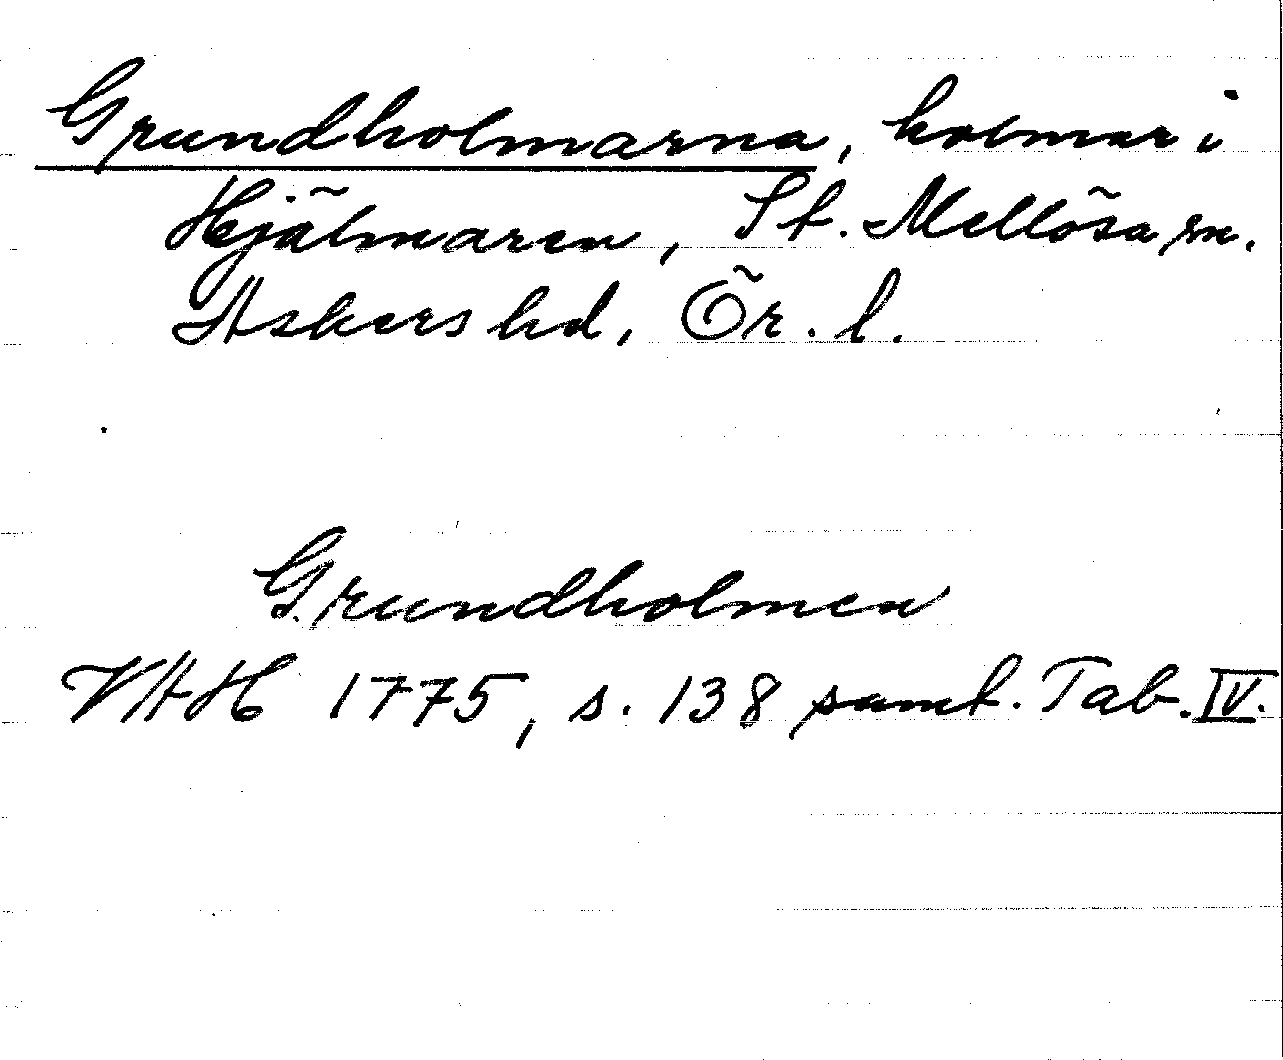 Grundholmarna, holmar i
Hjälmaren, St. Mellösa sn.
Askers hd, Ör. l.
Grundholmen
VAH 1775, s. 138 samt. Tab. IV.